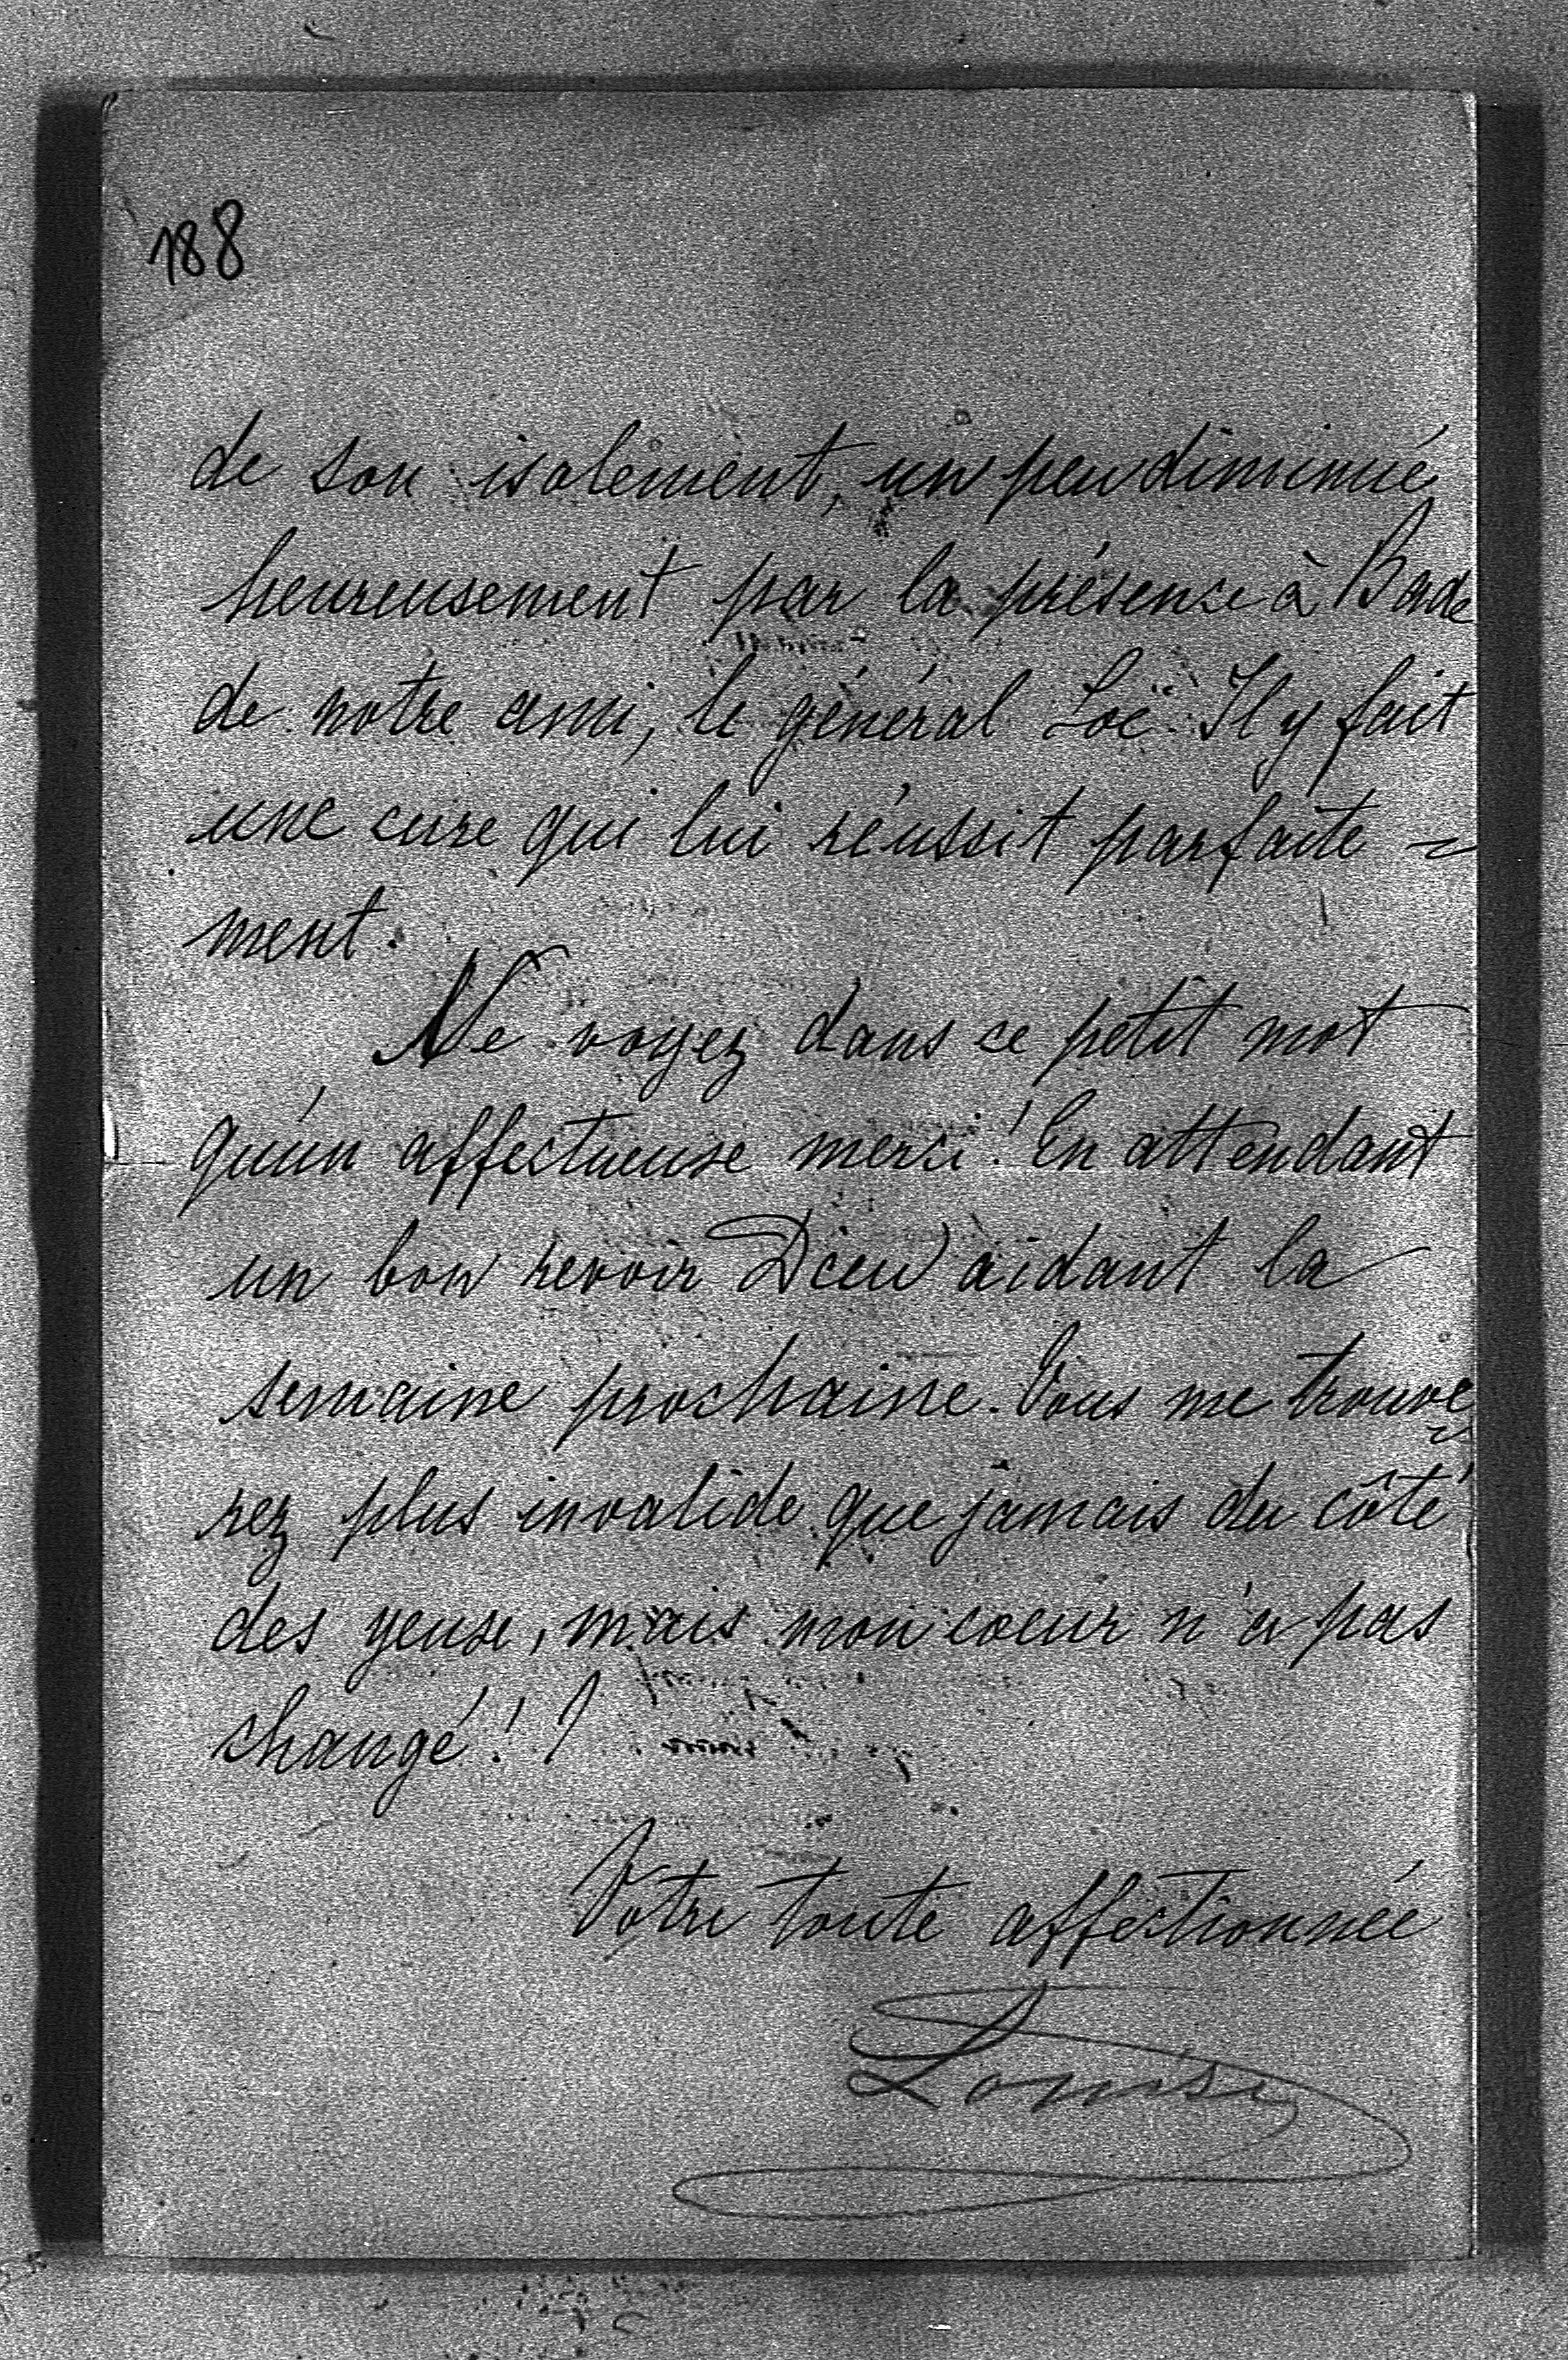 188
de son isolement, un peu diminué
heureusement par la présence à Bade
de notre ami, le général Loë. Il y fait
une cure qui lui réussit parfaite=
ment.
Ne voyez dans ce petit mot
qu'un affectueuse merci! En attendant
un bon revoir Dieu aidant la
semaine prochaine. Vous me trouve=
rez plus invalide que jamais du côté
des yeux, mais mon coeur n'a pas
changé!!
Votre toute affectionnée
Louise